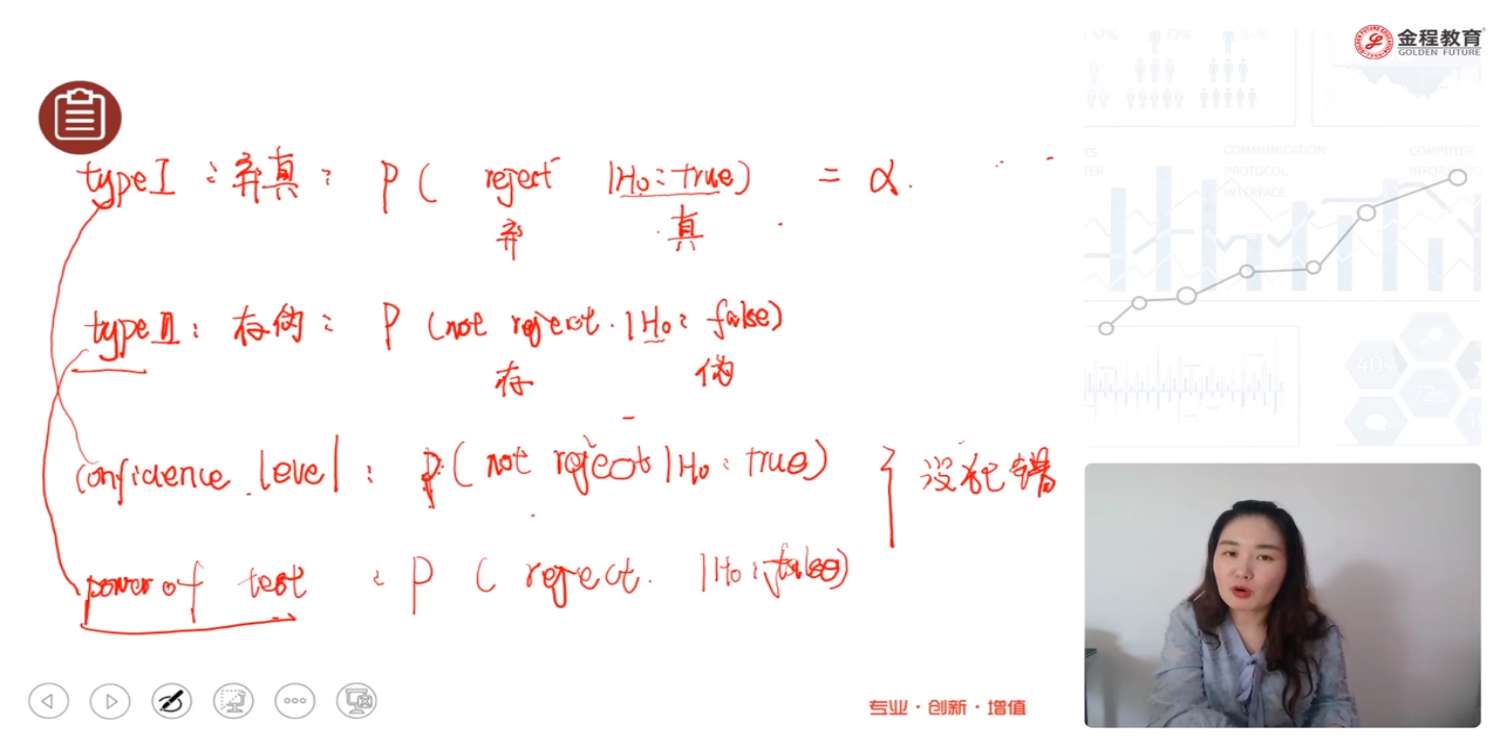 金程教育
GOLDEN FUTURE
type I : 弃真 : P ( reject | H₀ : true ) = α.
弃 真
type II : 存伪 : P (not reject . | H₀ : false)
存 伪
confidence level : P ( not reject | H₀ : true ) { 没犯错
power of test : P ( reject . | H₀ : false )
COMMUNICATION
PROTOCOL
INTERFACE
专业 · 创新 · 增值